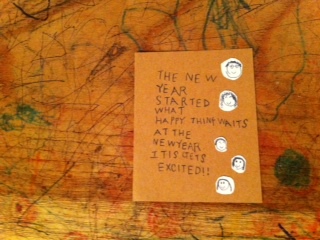 THE NEW
YEAR
STARTED
WHAT
HAPPY THINK WAITS
AT THE
NEW YEAR
IT IS LETS
EXCITED!!